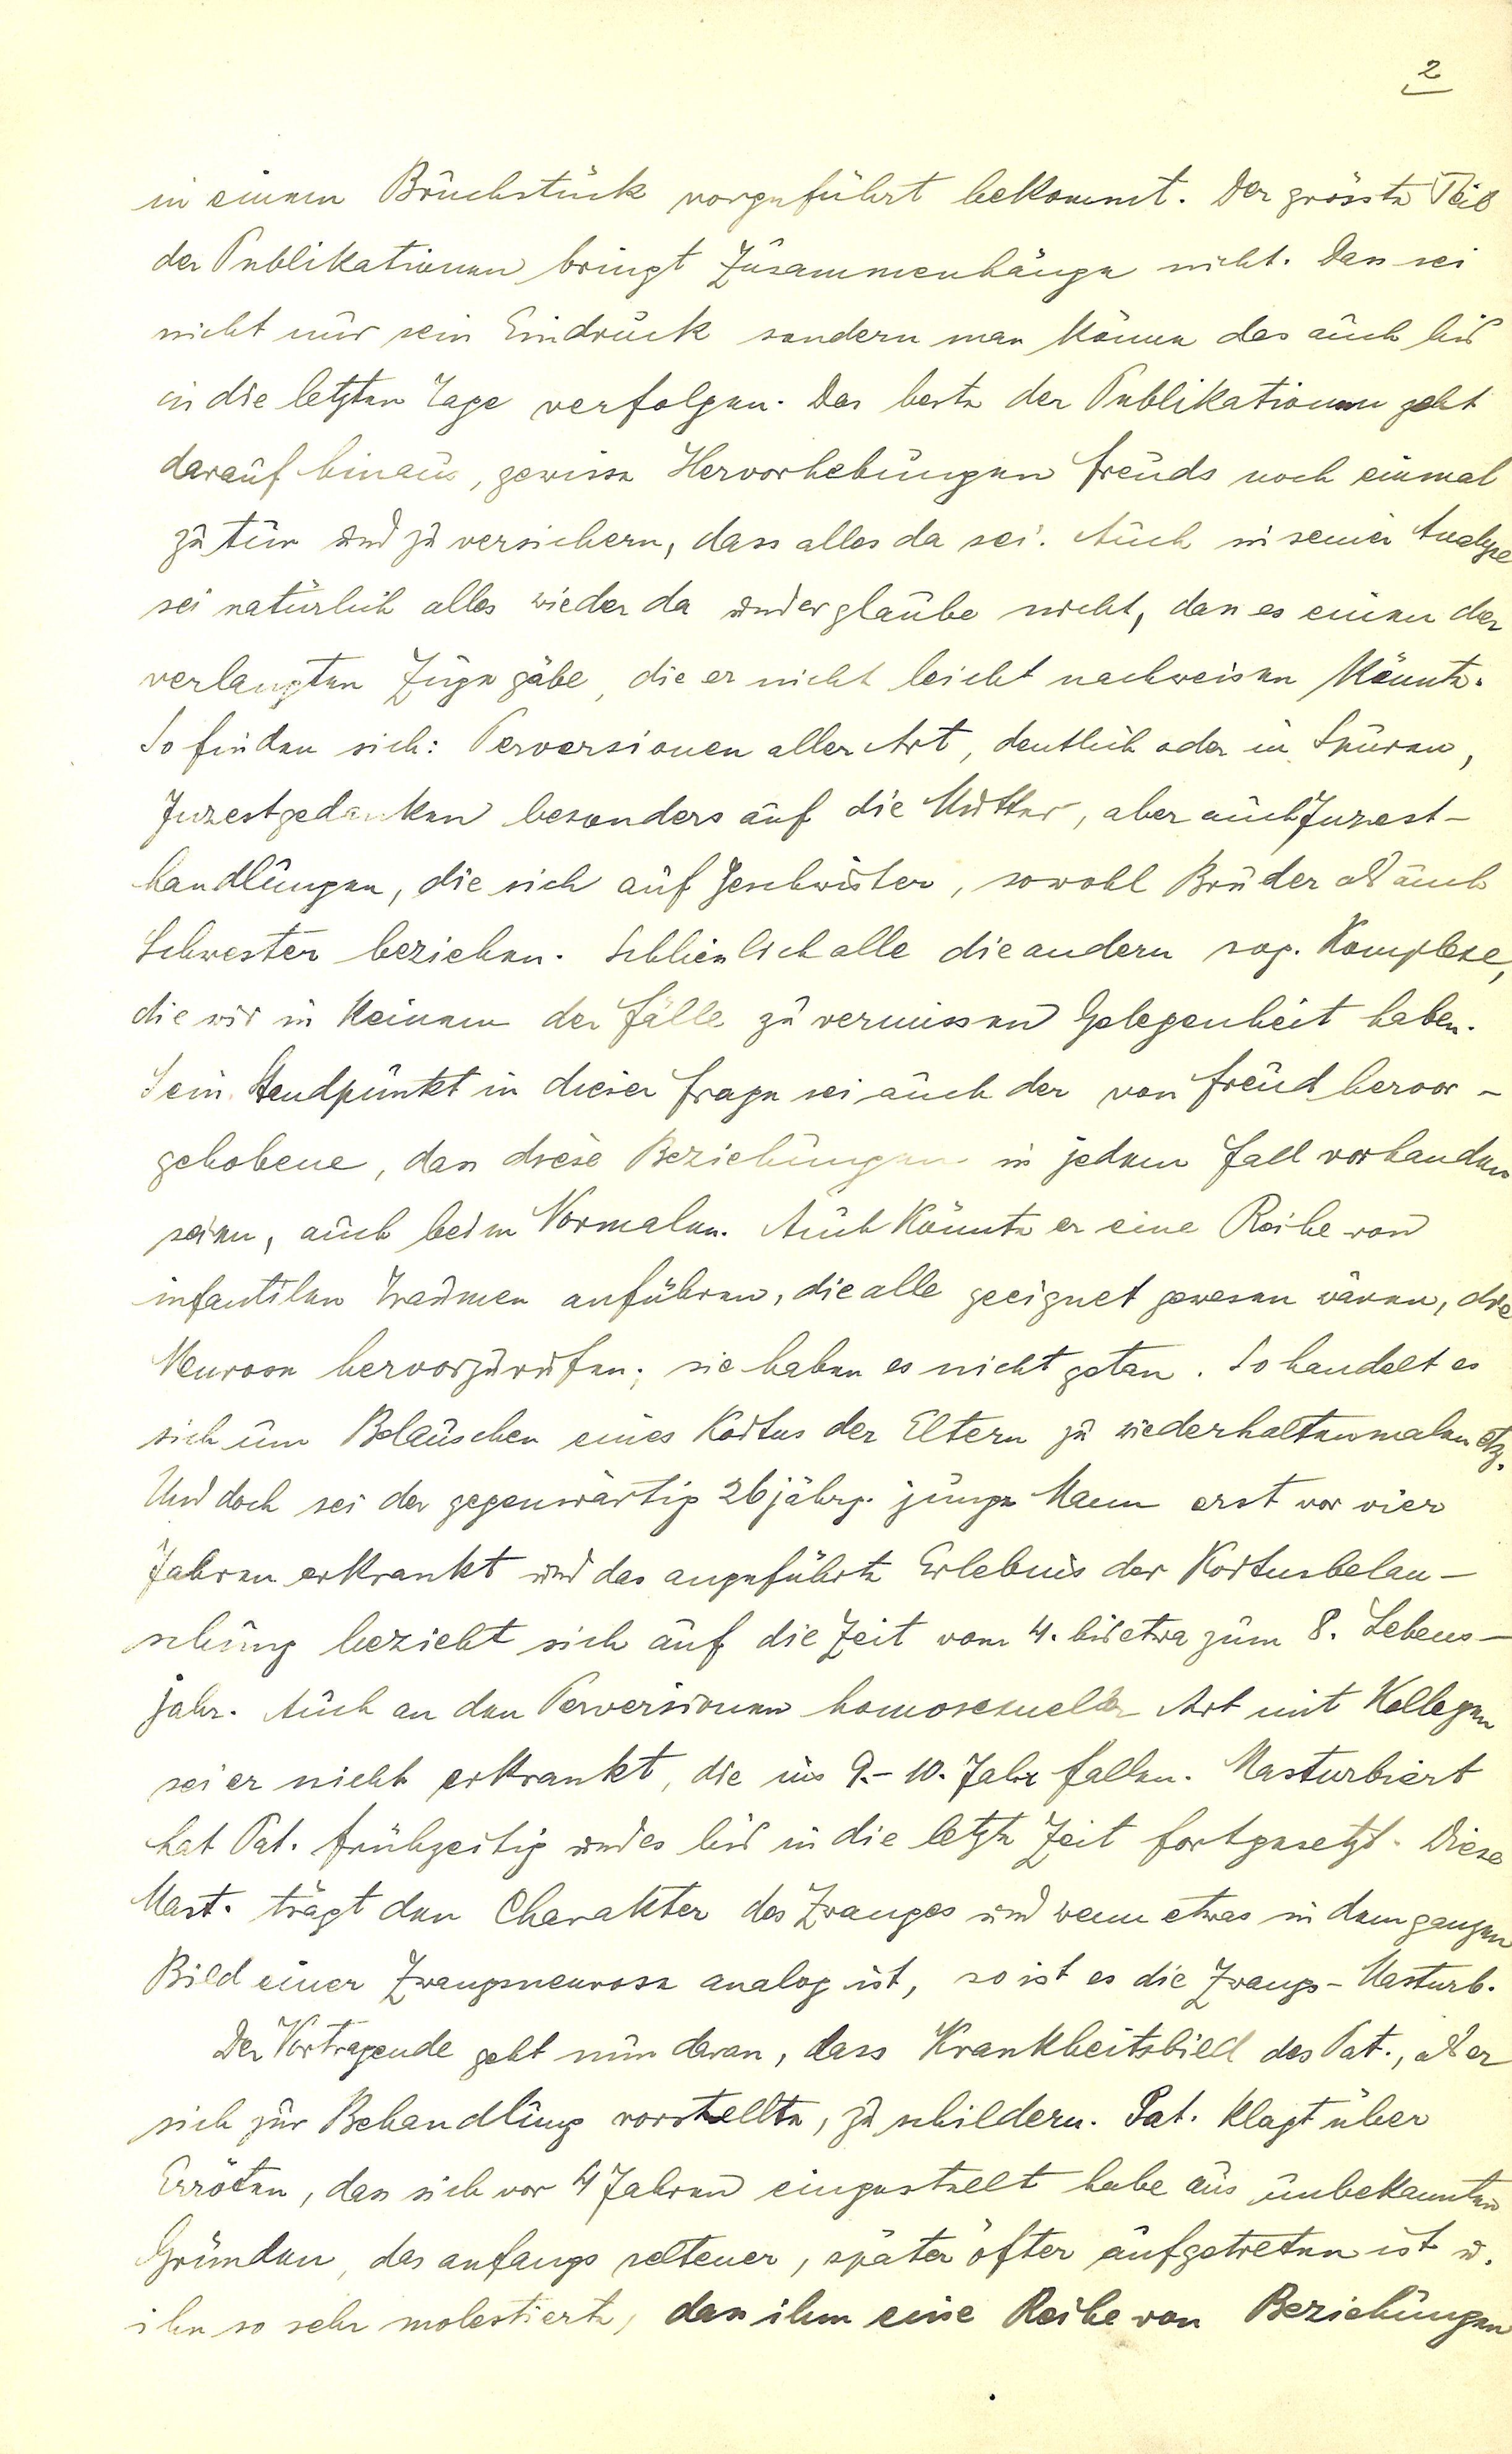 2
in einem Bruchstück vorgeführt bekommt. Der grösste Teil
der Publikationen bringt Zusammenhänge nicht. Das sei
nicht nur sein Eindruck sondern man könne das auch bis
in die letzten Tage verfolgen. Das beste der Publikationen geht
darauf hinaus, gewisse Hervorhebungen Freuds noch einmal
zu tun und zu versichern, dass alles da sei. Auch in seiner Analyse
sei natürlich alles wieder da und er glaube nicht, dass es einen der
verlangten Züge gäbe, die er nicht leicht nachweisen könnte.
So finden sich: Perversionen aller Art, deutlich oder in Spuren,
Inzestgedanken besonders auf die Mutter, aber auch Inzest-
handlungen, die sich auf Geschwister, sowohl Brüder als auch
Schwester beziehen. Schliesslich alle die andern sog. Komplexe,
die wir in keinem der Fälle zu vermissen Gelegenheit haben.
Sein Standpunkt in dieser Frage sei auch der von Freud hervor-
gehobene, dass diese Beziehungen in jedem Fall vorhanden
seien, auch beim Normalen. Auch könnte er eine Reihe von
infantilen Traumen anführen, die alle geeignet gewesen wären, die
Neurose hervorzurufen; sie haben es nicht getan. So handelt es
sich um Belauschen eines Koitus der Eltern zu wiederholtenmalen etz.
Und doch sei der gegenwärtig 26jährg. junge Mann erst vor vier
Jahren erkrankt und das angeführte Erlebnis der Koitusbelau-
schung bezieht sich auf die Zeit vom 4. bis etwa zum 8. Lebens-
jahr. Auch an den Perversionen homosexueller Art mit Kollegen
sei er nicht erkrankt, die ins 9.-10. Jahr fallen. Masturbiert
hat Pat. frühzeitig und es bis in die letzte Zeit fortgesetzt. Diese
Mast. trägt den Charakter des Zwanges und wenn etwas in dem ganzen
Bild einer Zwangsneurose analog ist, so ist es die Zwangs-Masturb.
Der Vortragende geht nun daran, dass Krankheitsbild des Pat., als er
sich zur Behandlung vorstellte, zu schildern. Pat. klagt über
Erröten, das sich vor 4 Jahren eingestellt habe aus unbekannten
Gründen, das anfangs seltener, später öfter aufgetreten ist u.
ihn so sehr molestierte, dass ihm eine Reihe von Beziehungen